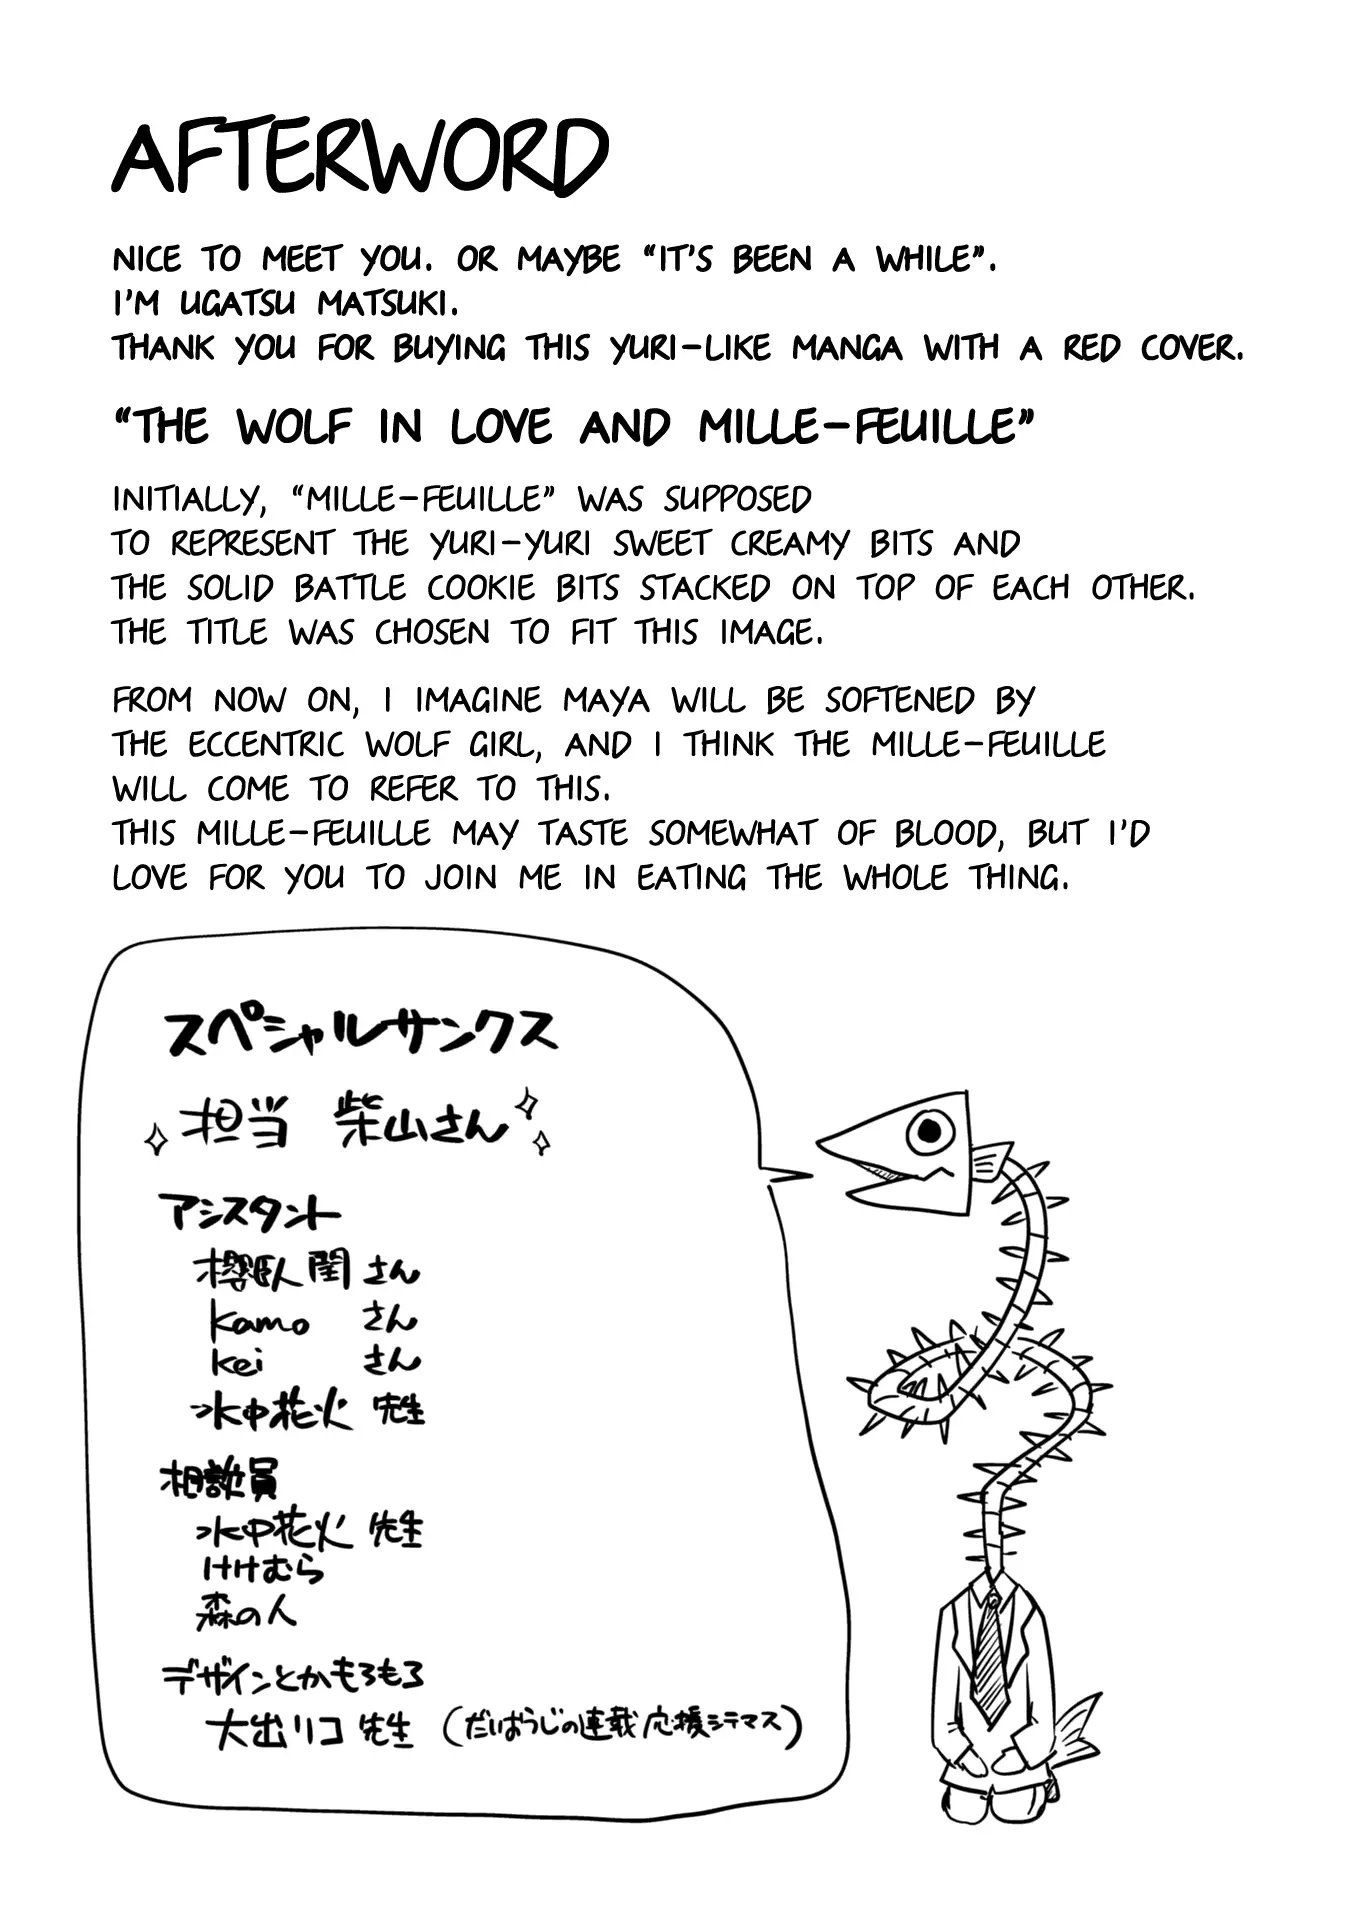 AFTERWORD
NICE TO MEET YOU. OR MAYBE “IT'S BEEN A WHILE”.
I'M UGATSU MATSUKI.
THANK YOU FOR BUYING THIS YURI-LIKE MANGA WITH A RED COVER.
“THE WOLF IN LOVE AND MILLE-FEUILLE”
INITIALLY, “MILLE-FEUILLE” WAS SUPPOSED
TO REPRESENT THE YURI-YURI SWEET CREAMY BITS AND
THE SOLID BATTLE COOKIE BITS STACKED ON TOP OF EACH OTHER.
THE TITLE WAS CHOSEN TO FIT THIS IMAGE.
FROM NOW ON, I IMAGINE MAYA WILL BE SOFTENED BY
THE ECCENTRIC WOLF GIRL, AND I THINK THE MILLE-FEUILLE
WILL COME TO REFER TO THIS.
THIS MILLE-FEUILLE MAY TASTE SOMEWHAT OF BLOOD, BUT I'D
LOVE FOR YOU TO JOIN ME IN EATING THE WHOLE THING.
スペシャルサンクス
担当 柴山さん
アシスタント
櫻臥 閏 さん
kamo さん
kei さん
水中花火 先生
相談員
水中花火 先生
けけむら
森の人
デザインとかもろもろ
大出リコ 先生 (だいおうじの連載応援シテマス)